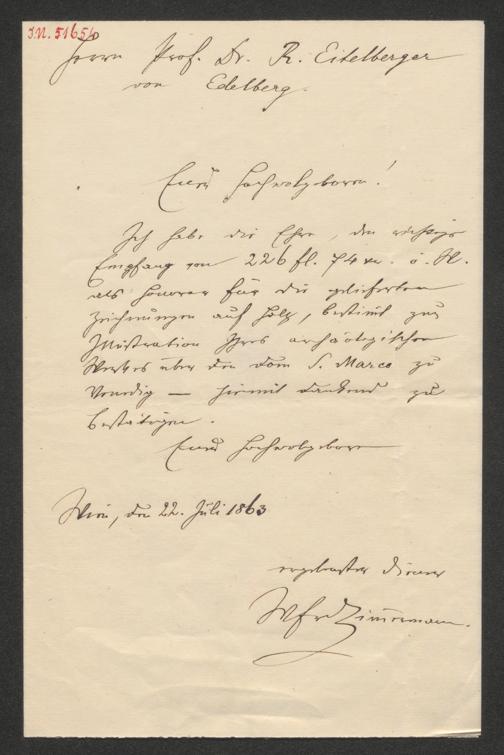 I.N. 51654
Herrn Prof. Dr. R. Eitelberger
von Edelberg.
Euer Hochwolgeboren!
Ich habe die Ehre, den richtigen
Empfang von 226 fl. 74 kr. ö. W.
als Honorar für die gelieferten
Zeichnungen auf Holz, bestimt zur
Illustration Ihres archäologischen
Werkes über den Dom S. Marco zu
Venedig — hiermit dankend zu
bestätigen.
Euer Hochwolgeboren
Wien, den 22. Juli 1863
ergebenster Diener
Zimmermann.